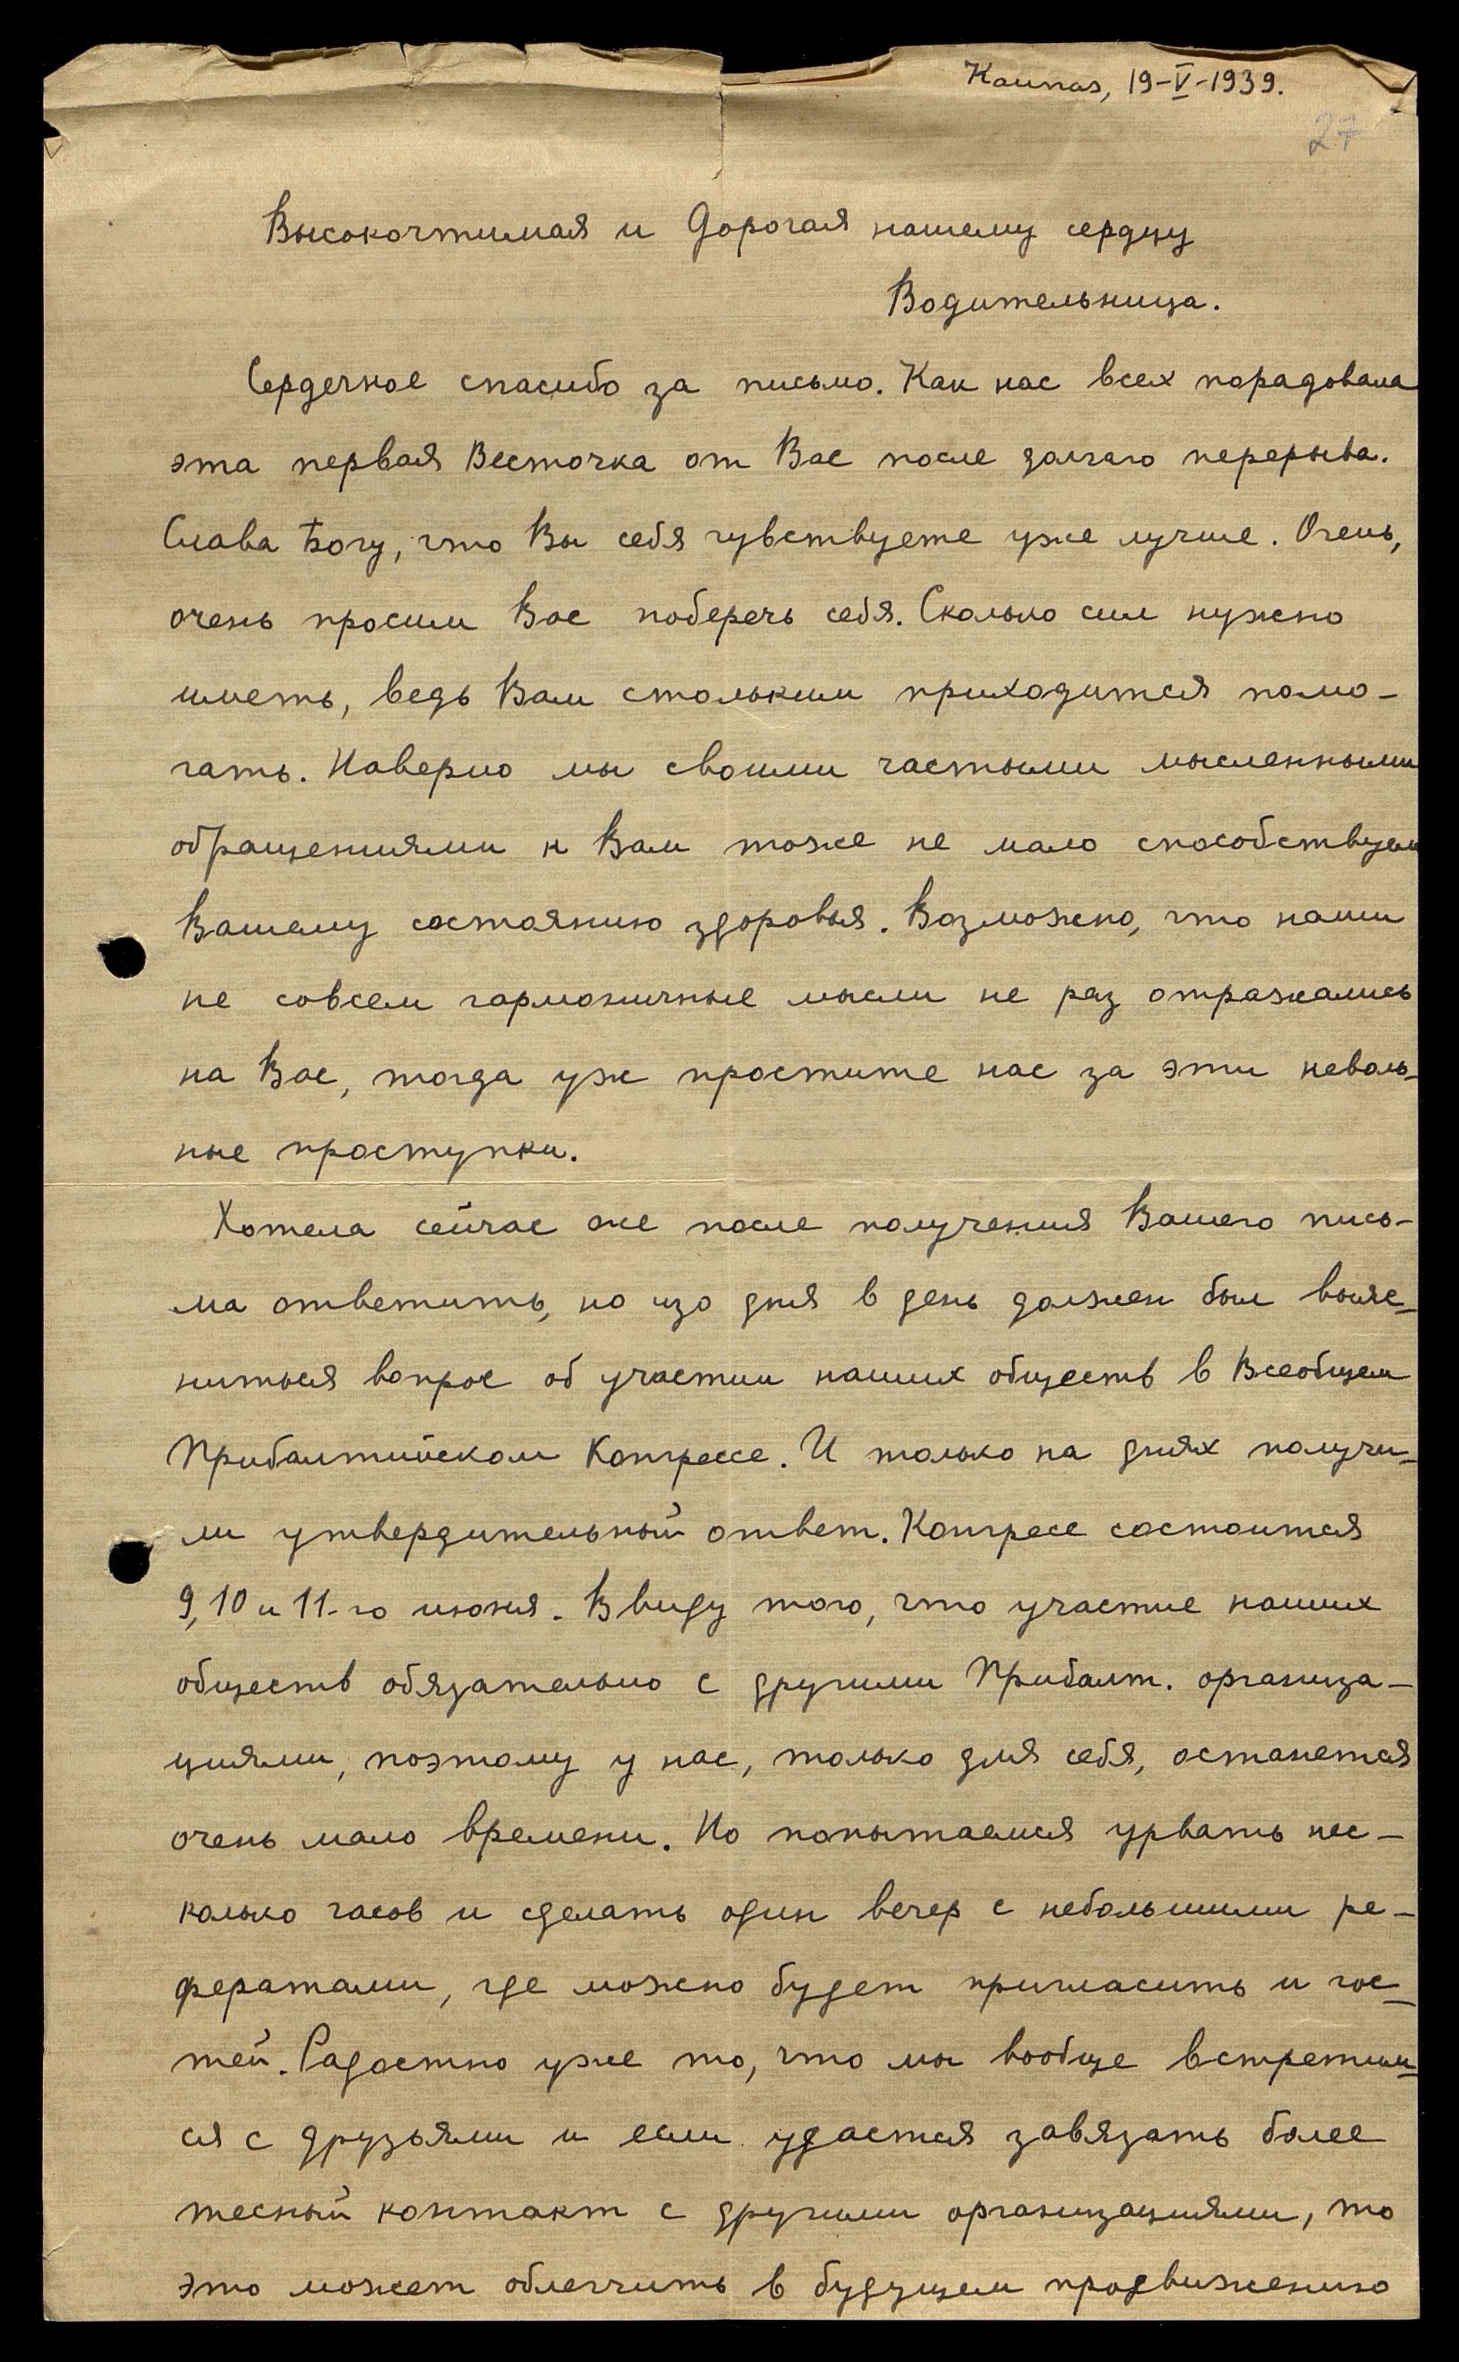 Kaunas, 19-V-1939.
27
Высокочтимая и Дорогая нашему сердцу
Водительница.
Сердечное спасибо за письмо. Как нас всех порадовала
эта первая Весточка от Вас после долгаго перерыва.
Слава Богу, что Вы себя чувствуете уже лучше. Очень,
очень просим Вас поберечь себя. Сколько сил нужно
иметь, ведь Вам стольким приходится помо-
гать. Наверно мы своими частыми мысленными
обращениями к Вам тоже не мало способствуем
Вашему состоянию здоровья. Возможно, что наши
не совсем гармоничные мысли не раз отражались
на Вас, тогда уж простите нас за эти неволь-
ные проступки.
Хотела сейчас же после получения Вашего пись-
ма ответить, но изо дня в день должен был выяс-
ниться вопрос об участии наших обществ в Всеобщем
Прибалтийском Конгрессе. И только на днях получи-
ли утвердительный ответ. Конгресс состоится
9, 10 и 11-го июня. В виду того, что участие наших
обществ обязательно с другими Прибалт. организа-
циями, поэтому у нас, только для себя, останется
очень мало времени. Но попытаемся урвать нес-
колько часов и сделать один вечер с небольшими ре-
фератами, где можно будет пригласить и гос-
тей. Радостно уже то, что мы вообще встретим-
ся с друзьями и если удастся завязать более
тесный контакт с другими организациями, то
это может облегчить в будущем продвижению